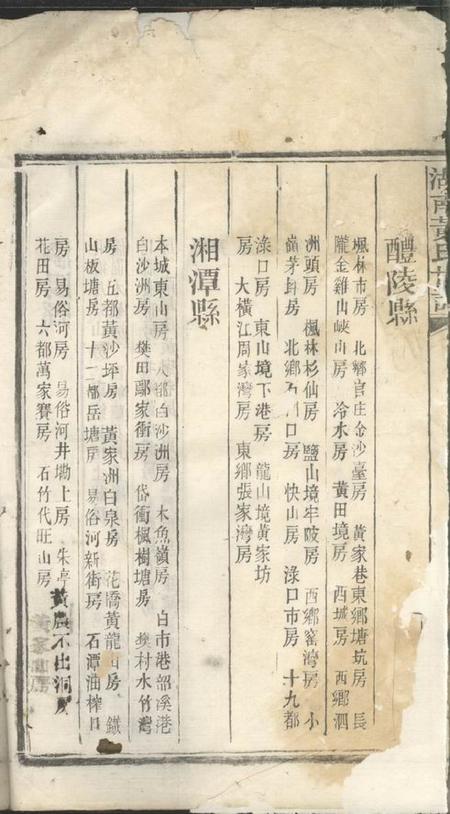 湖南黃氏世譜
醴陵縣
楓林市房 北鄉官庄金沙臺房 黃家巷東鄉塘坑房 長
隴金雞山峽山房 冷水房 黃田境房 西城房 西鄉泗
洲頭房 楓林杉仙房 鹽山境牢陂房 西鄉窰灣房 小
嶺茅田房 北鄉 口房 快山房 淥口市房 十九都
淥口房 東山境下港房 龍山境黃家坊
房 大橫江周家灣房 東鄉張家灣房
湘潭縣
本城東山房 八都白沙洲房 木魚嶺房 白市巷韶溪港
白沙洲房 樊田鄢家衝房 岱衝楓樹塘房 樊村水竹灣
房 五都黃沙坪房 黃家洲白泉房 花橋黃龍 房 鐵
山板塘房 十二都岳塘房 易俗河新街房 石潭油榨口
房 易俗河房 易俗河井坳上房 朱亭黃農不出洞房
花田房 六都萬家賽房 石竹代旺山房 黃家山房